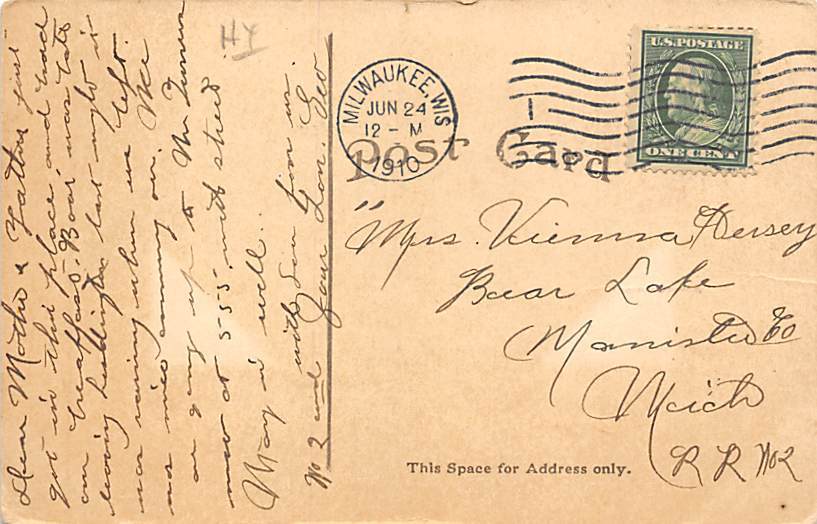 Dear Mother & Father just
got in this place, and had
our breakfast. Boat was late
leaving Luddington last night it
was raining when we left.
as nice coming over. We
are going up to Mr
now at 555. with street
May is well..
with Love from us.
No 2 and Your Son. Geo
H4
MILWAUKEE, WIS
JUN 24
12 - M
1910
U.S. POSTAGE
ONE CENT
Post Card
"Mrs. Vienna Dersey
Bear Lake
Manistee Co
Mich
R R No 2
This Space for Address only.